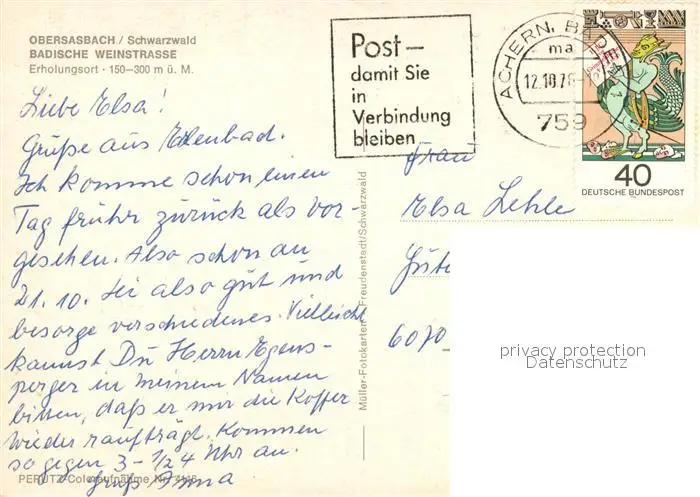 OBERSASBACH / Schwarzwald
BADISCHE WEINSTRASSE
Erholungsort · 150—300 m ü. M.
Liebe Elsa!
Grüße aus Erlenbad.
Ich komme schon einen
Tag früher zurück als vor-
gesehen. Also schon am
21. 10. Sei also gut und
besorge verschiedenes. Vielleicht
kannst Du Herrn Egens-
perger in meinem Namen
bitten, daß er mir die Koffer
wieder raufträgt. Kommen
so gegen 3-1/24 Uhr an.
Gruß Anna
PERUTZ-Coloraufnahme Nr.
Müller-Fotokarten Freudenstadt/Schwarzwald
Post—
damit Sie
in
Verbindung
bleiben
ACHERN, BA
ma
12.10.76
759
40
DEUTSCHE BUNDESPOST
Frau
Elsa Lehle
Güte
6070
privacy protection
Datenschutz